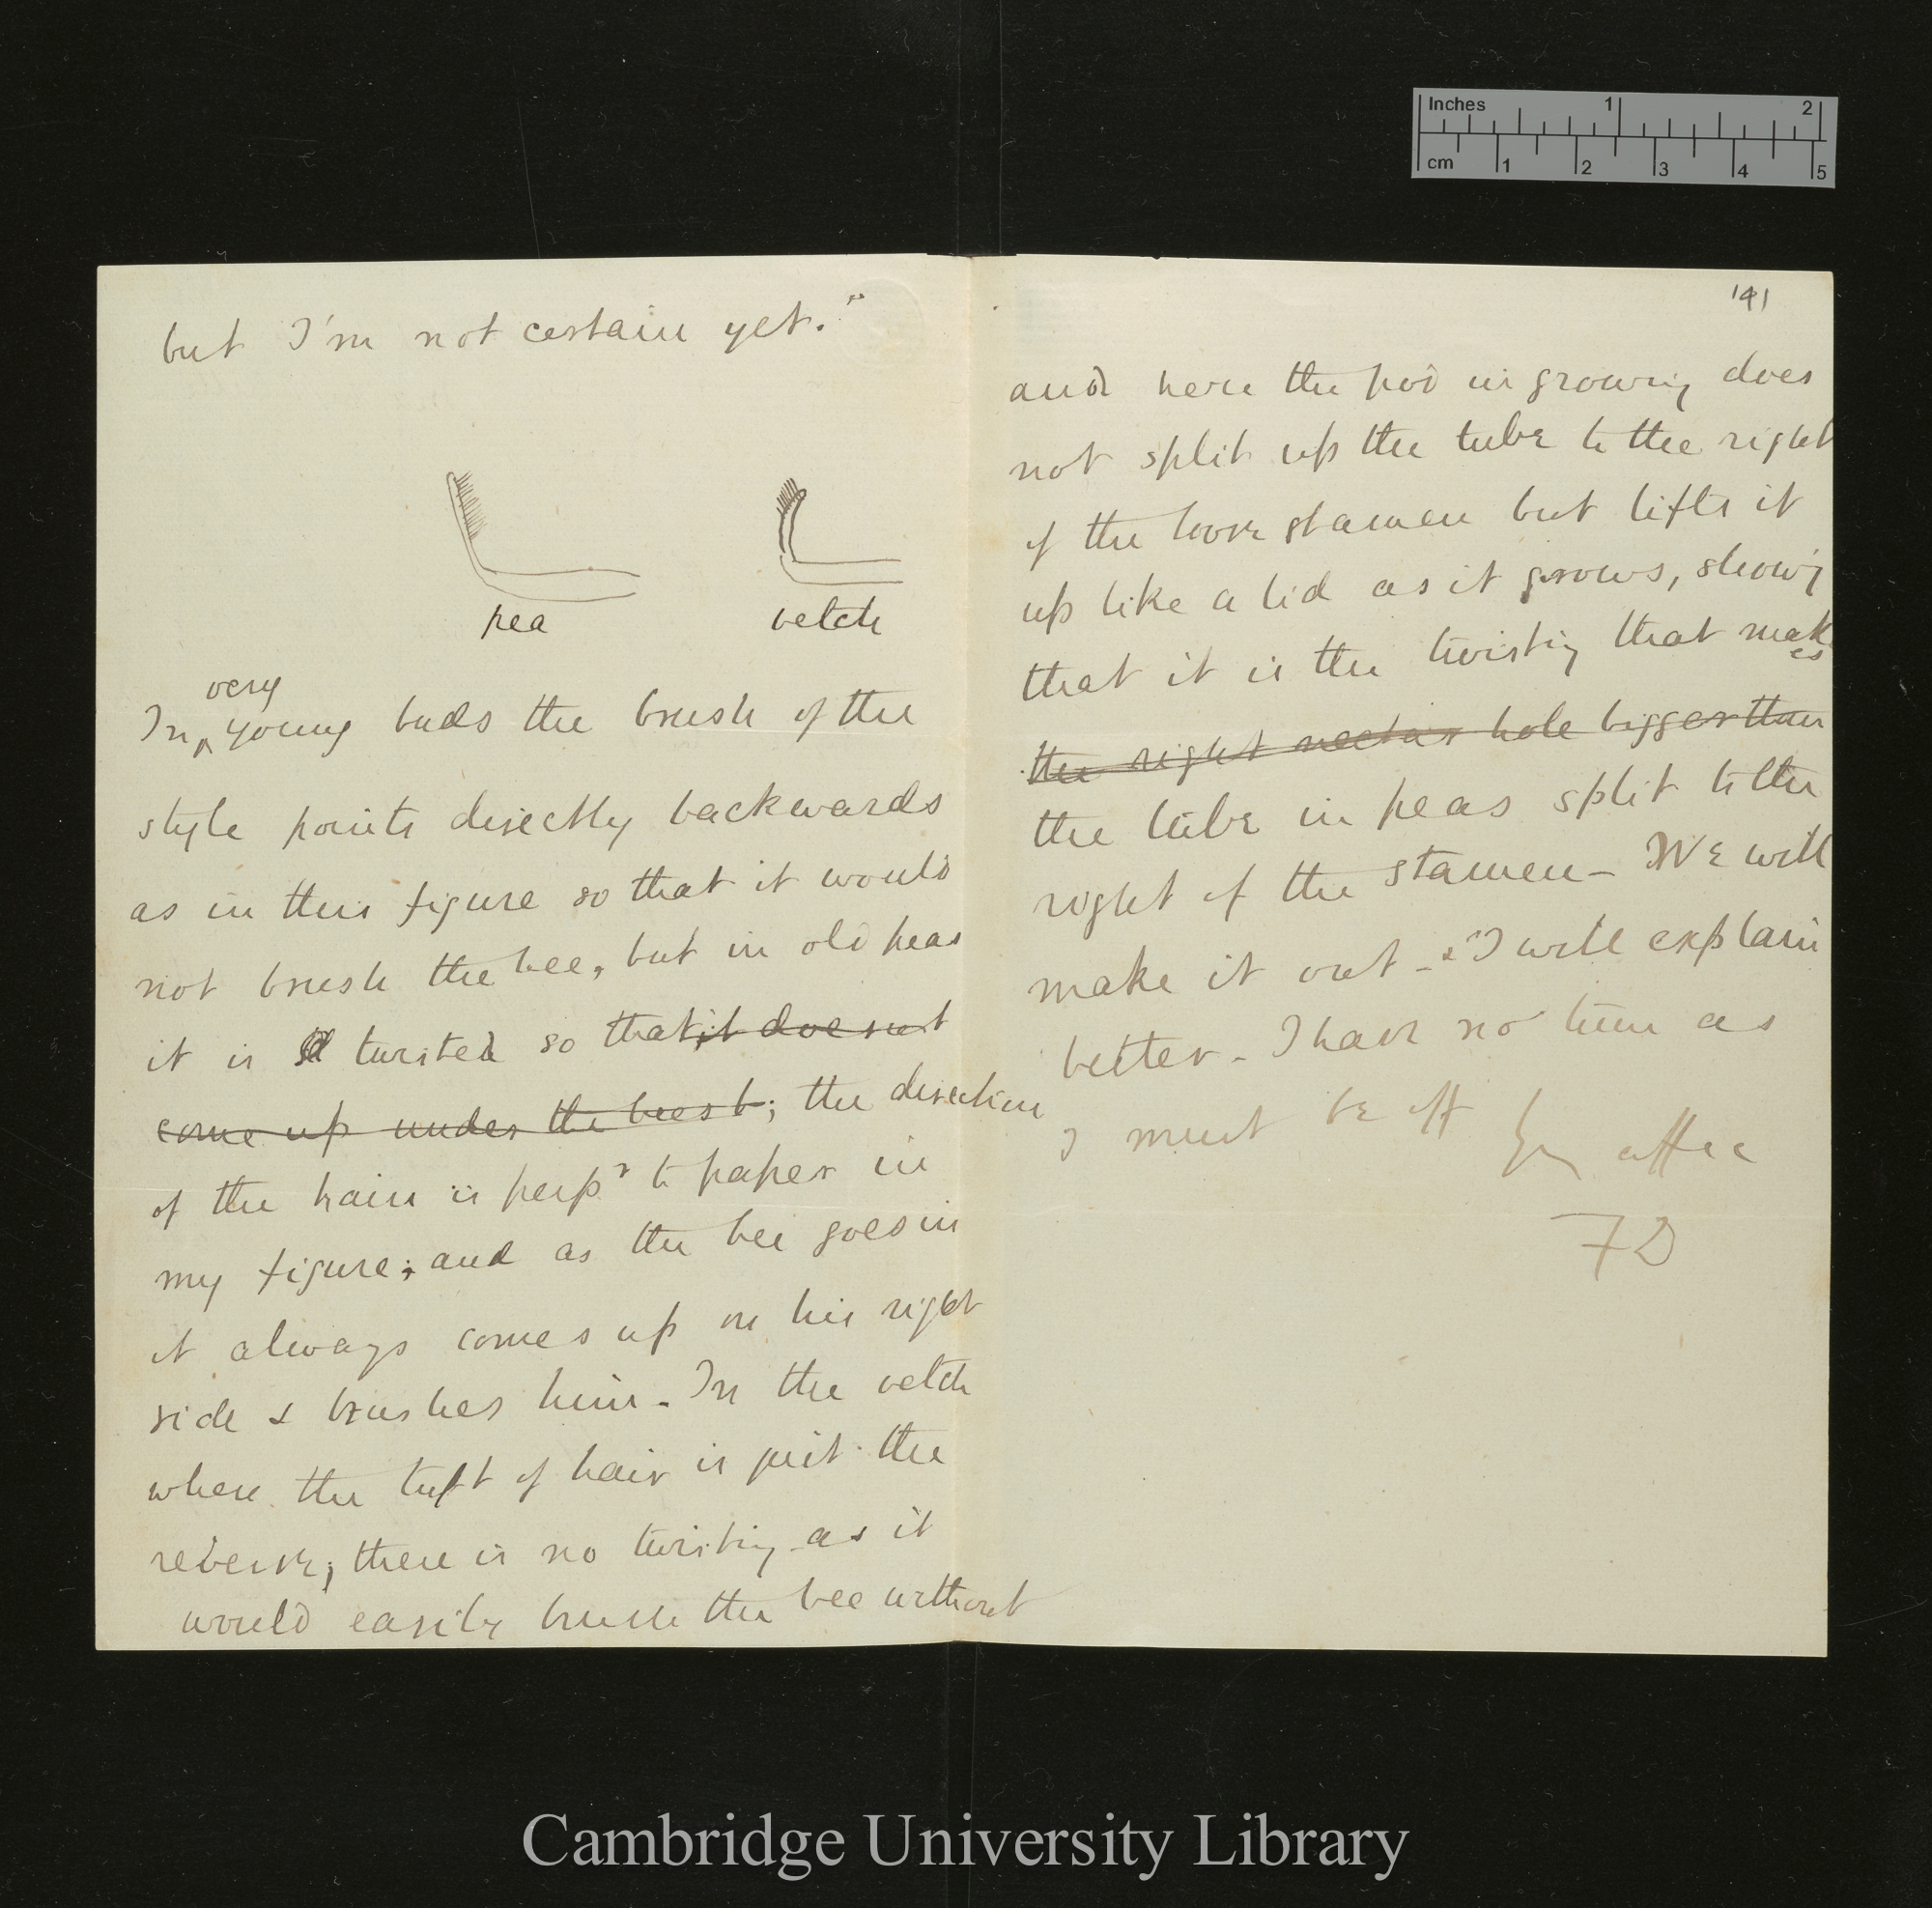 Inches 1 2
cm 1 2 3 4 5
but I'm not certain yet."
pea vetch
very
In ^ young buds the brush of the
style points directly backwards
as in this figure so that it would
not brush the bee, but in old peas
it is twisted so that it does not
come up under the beest; the direction
of the hairs is perpr to paper in
my figure; and as the bee goes in
it always comes up on his right
side & brushes him. In the vetch
where the tuft of hair is just the
reverse; there is no twisting as it
would easily brush the bee without
141
and here the pod in growing does
not split up the tube to the right
of the loose stamen but lifts it
up like a lid as it grows, showg
that it is the twisting that mak
es
the right nectar hole bigger than
the tube in peas split to the
right of the stamen— We will
make it out — & I will explain
better— I have no time as
I must be off Yr affec
FD
Cambridge University Library